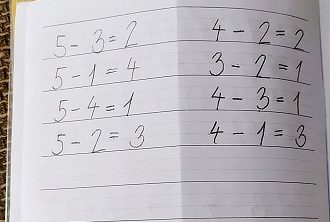 5 - 3 = 2
5 - 1 = 4
5 - 4 = 1
5 - 2 = 3
4 - 2 = 2
3 - 2 = 1
4 - 3 = 1
4 - 1 = 3